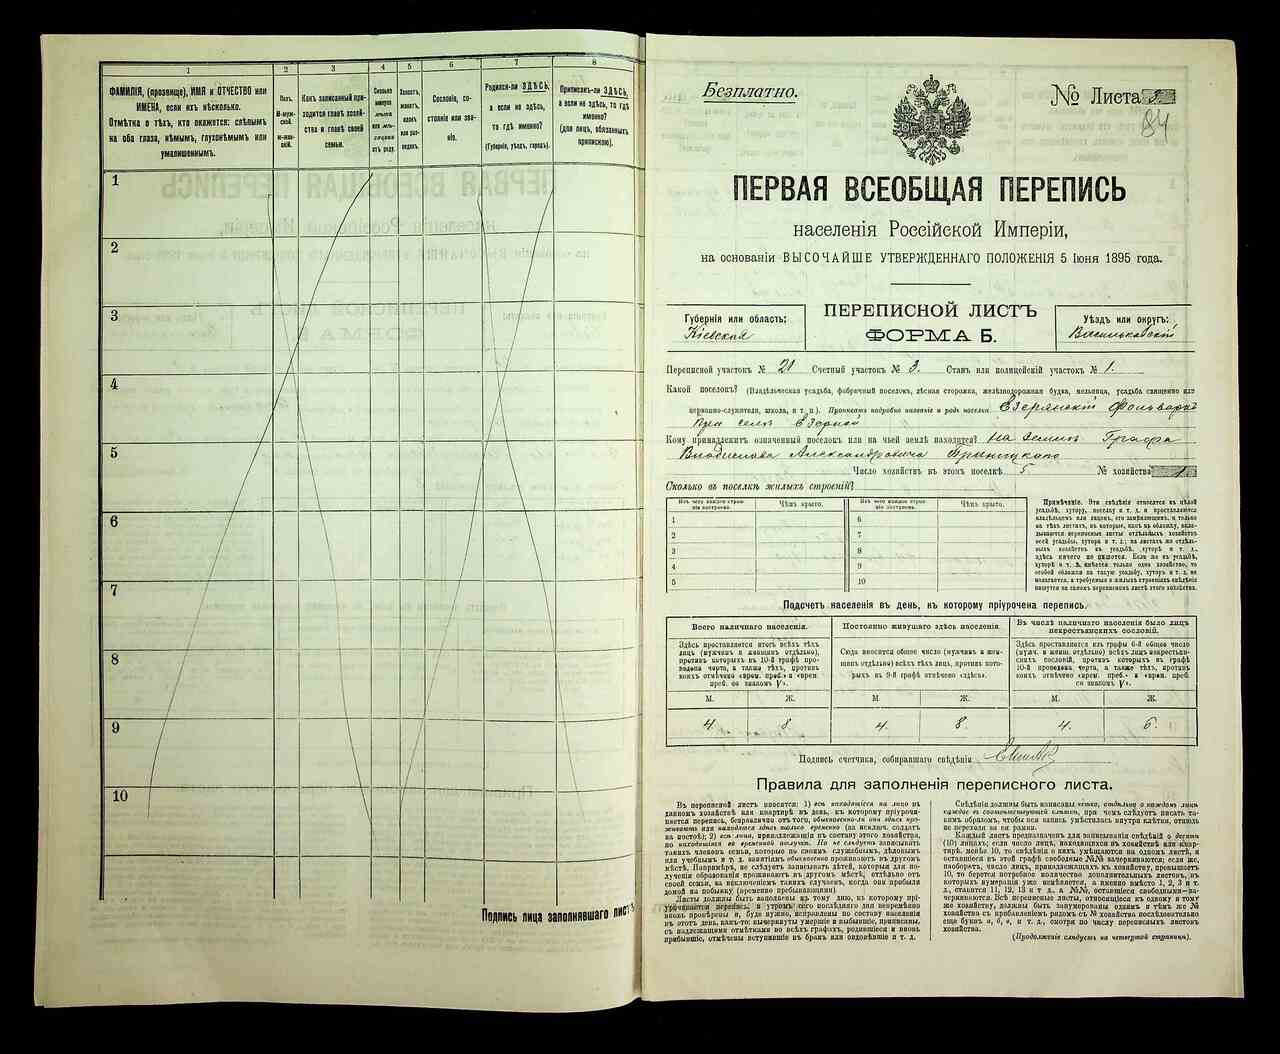 1
2
3
4
5
6
7
8
ФАМИЛІЯ, (прозвище), ИМЯ и ОТЧЕСТВО или
ИМЕНА, если ихъ нѣсколько.
Отмѣтка о тѣхъ, кто окажется: слѣпымъ
на оба глаза, нѣмымъ, глухонѣмымъ или
умалишеннымъ.
Полъ.
М-муж-
ской.
Ж-жен-
скій.
Какъ записанный при-
ходится главѣ хозяй-
ства и главѣ своей
семьи.
Сколько
минуло
лѣтъ
или мѣ-
сяцевъ
отъ роду.
Холостъ,
женатъ,
вдовъ
или раз-
веденъ.
Сословіе, со-
стояніе или зва-
ніе.
Родился-ли ЗДѢСЬ,
а если не здѣсь,
то гдѣ именно?
(Губернія, уѣздъ, городъ).
Приписанъ-ли ЗДѢСЬ,
а если не здѣсь, то гдѣ
именно?
(для лицъ, обязанныхъ
припискою).
1
2
3
4
5
6
7
8
9
10
Подпись лица заполнявшаго листъ
Безплатно.
№ Листа 3
84
ПЕРВАЯ ВСЕОБЩАЯ ПЕРЕПИСЬ
населенія Россійской Имперіи,
на основаніи ВЫСОЧАЙШЕ УТВЕРЖДЕННАГО ПОЛОЖЕНІЯ 5 Іюня 1895 года.
Губернія или область:
Кіевская
ПЕРЕПИСНОЙ ЛИСТЪ
ФОРМА Б.
Уѣздъ или округъ:
Васильковскій
Переписной участокъ № 20 Счетный участокъ № 3. Станъ или полицейскій участокъ № 1.
Какой поселокъ? (Владѣльческая усадьба, фабричный поселокъ, лѣсная сторожка, желѣзнодорожная будка, мельница, усадьба священно или
церковно-служителя, школа, и т. п.). Прописать подробно названіе и родъ поселка Езерянскій Фольварокъ
при селѣ Езерной
Кому принадлежитъ означенный поселокъ или на чьей землѣ находится? на землѣ Графа
Владислава Александровича Браницкаго
Число хозяйствъ въ этомъ поселкѣ 5 № хозяйства 1
Сколько въ поселкѣ жилыхъ строеній?
Изъ чего каждое строе-
ніе построено.
Чѣмъ крыто.
Изъ чего каждое строе-
ніе построено.
Чѣмъ крыто.
1
2
3
4
5
6
7
8
9
10
Примѣчаніе. Эти свѣдѣнія относятся къ цѣлой
усадьбѣ, хутору, поселку и т. д. и проставляются
владѣльцемъ или лицомъ, его замѣняющимъ, и только
на тѣхъ листахъ, въ которые, какъ въ обложку, вкла-
дываются переписные листы отдѣльныхъ хозяйствъ
всей усадьбы, хутора и т. д.; на листахъ же отдѣль-
ныхъ хозяйствъ въ усадьбѣ, хуторѣ и т. д.,
здѣсь ничего не пишется. Если же въ усадьбѣ,
хуторѣ и т. д. имѣется только одно хозяйство, то
особой обложки на такую усадьбу, хуторъ и т. д. не
полагается, а требуемыя о жилыхъ строеніяхъ свѣдѣнія
пишутся на самомъ переписномъ листѣ этого хозяйства.
Подсчетъ населенія въ день, къ которому пріурочена перепись.
Всего наличнаго населенія.
Постоянно живущаго здѣсь населенія.
Въ числѣ наличнаго населенія было лицъ
некрестьянскихъ сословій.
Здѣсь проставляется итогъ всѣхъ тѣхъ
лицъ (мужчин и женщин отдѣльно),
противъ которыхъ въ 10-й графѣ про-
ведена черта, а также тѣхъ, противъ
коихъ отмѣчено «врем. преб.» и «врем.
преб. со знакомъ V».
Сюда вносится общее число (мужчинъ и жен-
щинъ отдѣльно) всѣхъ тѣхъ лицъ, противъ кото-
рыхъ въ 9-й графѣ отмѣчено «здѣсь».
Здѣсь проставляется изъ графы 6-й общее число
(мужч. и женщ. отдѣльно) всѣхъ лицъ некрестьян-
скихъ сословій, противъ которыхъ въ графѣ
10-й проведена черта, а также тѣхъ, противъ
коихъ отмѣчено «врем. преб.» и «врем. преб.
со знакомъ V».
М. Ж. М. Ж. М. Ж.
4. 8 4. 8. 4. 6.
Подпись счетчика, собиравшаго свѣдѣнія
Правила для заполненія переписного листа.
Въ переписной листъ вносятся: 1) всѣ находящіеся на лицо въ
данномъ хозяйствѣ или квартирѣ въ день, къ которому пріуро-
чивается перепись, безразлично отъ того, обыкновенно-ли они здѣсь про-
живаютъ или находятся здѣсь только временно (за исключ. солдатъ
на постоѣ); 2) всѣ лица, принадлежащія къ составу этого хозяйства,
но находящіяся въ временной отлучкѣ. Но не слѣдуетъ записывать
такихъ членовъ семьи, которые по своимъ служебнымъ, дѣловымъ
или учебнымъ и т. д. занятіямъ обыкновенно проживаютъ въ другомъ
мѣстѣ. Напримѣръ, не слѣдуетъ записывать дѣтей, которыя для по-
лученія образованія проживаютъ въ другомъ мѣстѣ, отдѣльно отъ
своей семьи, за исключеніемъ такихъ случаевъ, когда они прибыли
домой на побывку (временно пребывающими).
Листы должны быть заполнены къ тому дню, къ которому прі-
урочивается перепись, и утромъ сего послѣдняго дня непремѣнно
вновь провѣрены и, буде нужно, исправлены по составу населенія
въ этотъ день, какъ-то: вычеркнуты умершіе и выбывшіе, приписаны,
съ надлежащими отмѣтками во всѣхъ графахъ, родившіеся и вновь
прибывшіе, отмѣчены вступившіе въ бракъ или овдовѣвшіе и т. д.
Свѣдѣнія должны быть написаны четко, отдѣльно о каждомъ лицѣ
каждое въ соотвѣтствующей клѣткѣ, при чемъ слѣдуетъ писать та-
кимъ образомъ, чтобы вся запись умѣстилась внутри клѣтки, отнюдь
не переходя за ея рамки.
Каждый листъ предназначенъ для записыванія свѣдѣній о десяти
(10) лицахъ; если число лицъ, находящихся въ хозяйствѣ или квар-
тирѣ, менѣе 10, то свѣдѣнія о нихъ умѣщаются на одномъ листѣ, а
оставшіеся въ этой графѣ свободные №№ зачеркиваются; если же,
наоборотъ, число лицъ, принадлежащихъ къ хозяйству, превышаетъ
10, то берется потребное количество дополнительныхъ листовъ, въ
которыхъ нумерація уже измѣняется, а именно вмѣсто 1, 2, 3 и т.
д., ставится 11, 12, 13 и т. д., а №№, оставшіеся свободными—за-
черкиваются. Всѣ переписные листы, относящіеся къ одному и тому
же хозяйству, должны быть занумерованы однимъ и тѣмъ же №
хозяйства съ прибавленіемъ рядомъ съ № хозяйства послѣдовательно
еще буквъ а, б, в, и т. д., смотря по числу переписныхъ листовъ
хозяйства.
(Продолженіе слѣдуетъ на четвертой страницѣ).